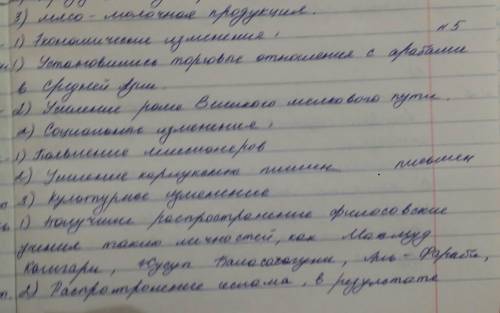 3) мясо-молочная продукция.
1) Экономические изменения:
N5
1) Установились торговые отношения с арабами
в Средней Азии.
2) Усиление роли Великого шелкового пути.
2) Социальные изменения:
1) Появление миссионеров
2) Усиление племен племен
3) Культурное изменение
1) Получили распространение философские
учения таких личностей, как Махмуд
Кашгари, Юсуп Баласагуни, Аль-Фараби,
2) Распространение ислама, в результате